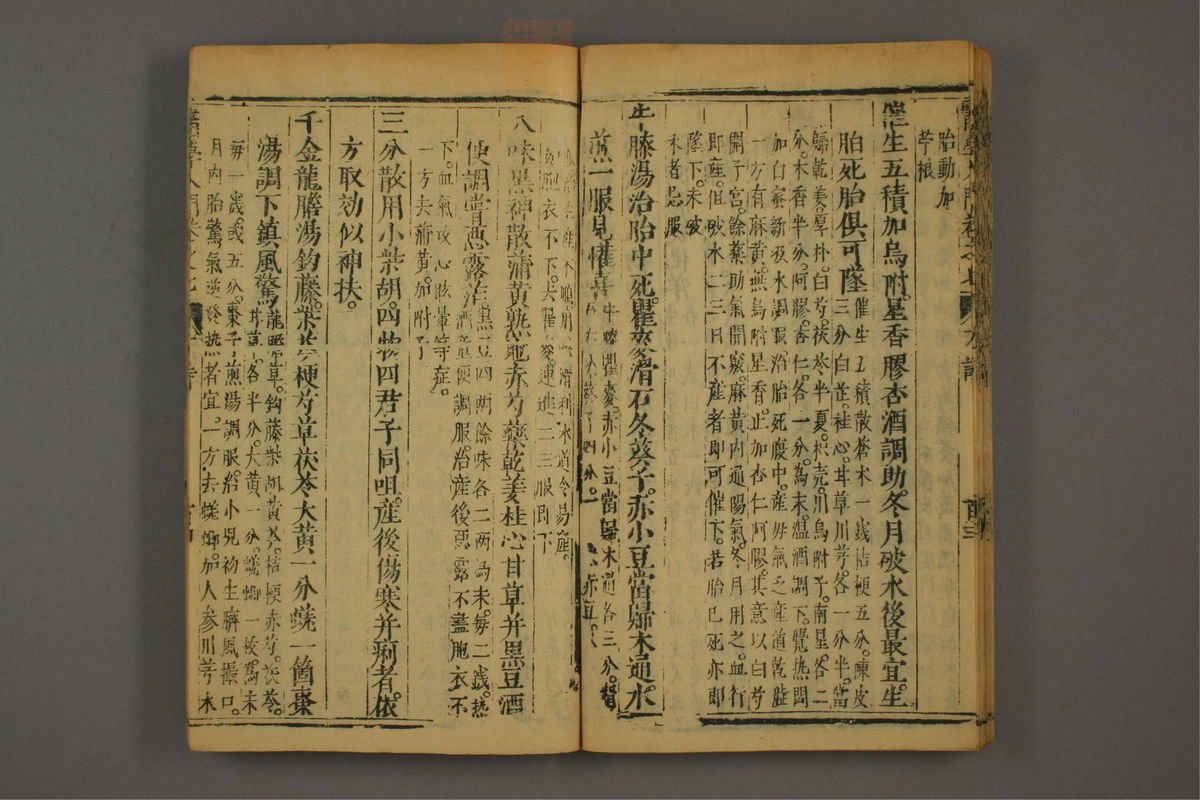 胎動加
苧根
催生五積加烏附。星香膠杏酒調助。冬月破水後最宜。生
胎死胎俱可墜
催生五積散蒼朮一錢桔梗五分。陳皮
三分白芷。桂心。甘草川芎。各一分半。當
歸乾姜。厚朴。白芍。茯苓半夏。枳壳。川烏附子。南星各二
分。木香半分。阿膠。杏仁。各一分。為末。温酒調下。覺熱悶
加白蜜新汲水調服治胎死腹中。産母氣乏産道乾澁
一方有麻黃。無烏附星香。止加杏仁阿膠。其意以白芍
開子宮餘藥助氣開竅。麻黃內通陽氣。冬月用之。血行
即産。但破水二三日不産者即可催下。若胎已死亦即
墜下。未破
水者忌服
牛膝湯治胎中死。瞿麥滑石冬葵子。赤小豆當歸木通。水
煎一服見懽喜
牛膝瞿麥。赤小豆當歸木通各三分。
不下。夫瞿麥。連進二三服即下
八味黑神散蒲黃熟地赤芍藥乾姜桂心甘草并黑豆酒
便調嘗惡露
黑豆四兩餘味各二兩為末。每二錢。熱
酒童便調服。治産後惡露不盡胞衣不
下。血氣攻心眩暈等症。
一方去蒲黃。加附子
三分散用小柴胡。四物四君子同咀。産後傷寒并痢者。依
方取効似神扶。
千金龍膽湯鈎藤。柴芩梗芍草茯苓大黃一分蜣一箇棗
湯調下鎮風驚
龍膽草。鈎藤柴胡黃芩。桔梗赤芍。茯苓。
甘草。各半分。大黃一分。蜣螂一枚。為末
每一錢。或五分。棗子煎湯調服。治小兒初生臍風撮口。
月內胎驚氣逆發熱者宜。一方去蜣螂。加人參川芎水